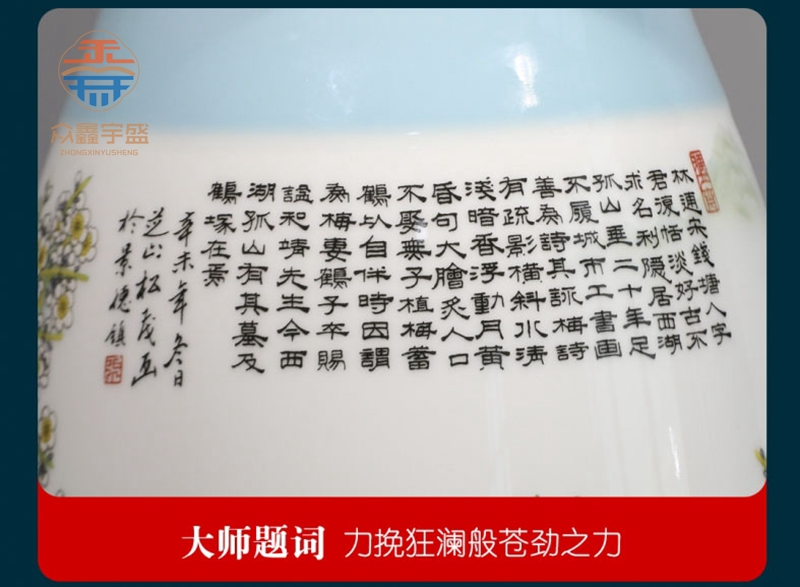 众鑫宇盛
ZHONGXINYUSHENG
林逋宋錢塘人字
君復恬淡好古不
求名利隱居西湖
孤山垂二十年足
不履城市工書画
善為詩其詠梅詩
有疏影橫斜水清
淺暗香浮動月黄
昏句大膾炙人口
不娶無子植梅蓄
鶴以自伴時因謂
為梅妻鶴子卒賜
謚和靖先生今西
湖孤山有其墓及
鶴塚在焉
辛未年冬日
芝山松茂画
於景德鎮
大师题词 力挽狂澜般苍劲之力